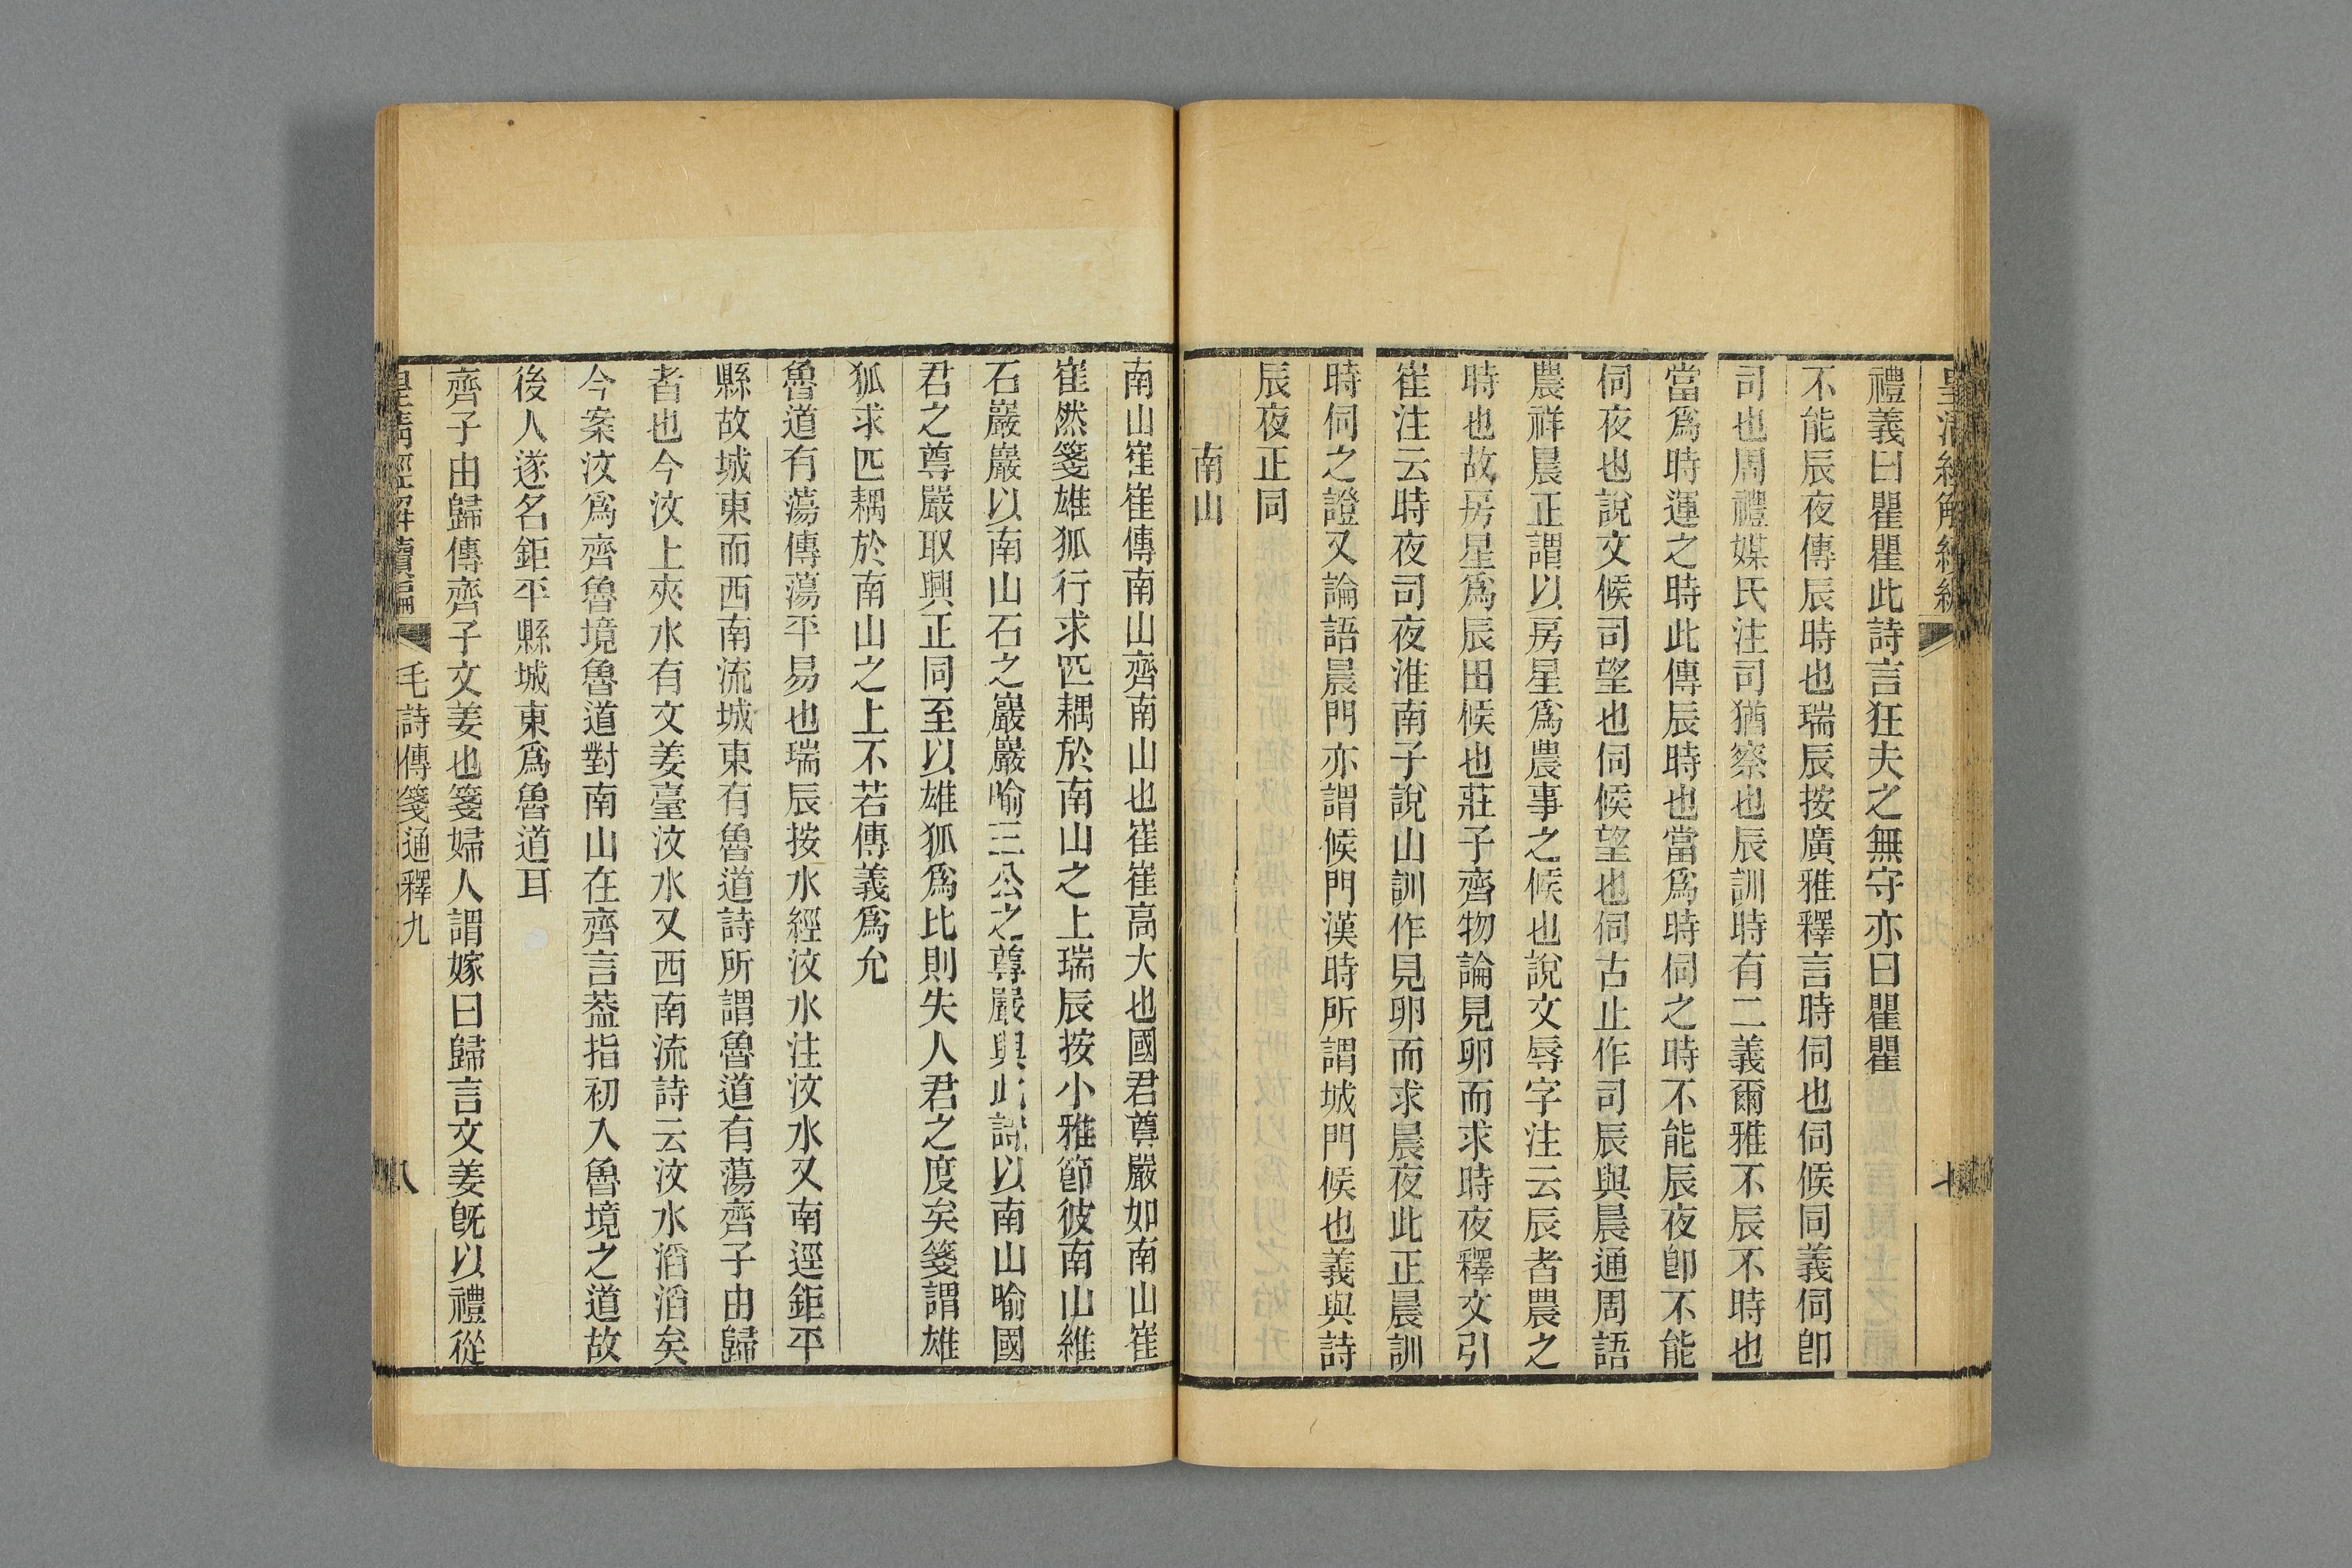 禮義曰瞿瞿此詩言狂夫之無守亦曰瞿瞿
不能辰夜傳辰時也瑞辰按廣雅釋言時伺也伺候同義伺卽
司也周禮媒氏注司猶察也辰訓時有二義爾雅不辰不時也
當爲時運之時此傳辰時也當爲時伺之時不能辰夜卽不能
伺夜也說文候司望也伺候望也伺古止作司辰與晨通周語
農祥晨正謂以房星爲農事之候也說文辱字注云辰者農之
時也故房星爲辰田候也莊子齊物論見卵而求時夜釋文引
崔注云時夜司夜淮南子說山訓作見卵而求晨夜此正晨訓
時伺之證又論語晨門亦謂候門漢時所謂城門候也義與詩
辰夜正同
南山
南山崔崔傳南山齊南山也崔崔高大也國君尊嚴如南山崔
崔然箋雄狐行求匹耦於南山之上瑞辰按小雅節彼南山維
石巖巖以南山石之巖巖喻三公之尊嚴與此詩以南山喻國
君之尊嚴取興正同至以雄狐爲比則失人君之度矣箋謂雄
狐求匹耦於南山之上不若傳義爲允
魯道有蕩傳蕩平易也瑞辰按水經汶水注汶水又南逕鉅平
縣故城東而西南流城東有魯道詩所謂魯道有蕩齊子由歸
者也今汶上夾水有文姜臺汶水又西南流詩云汶水滔滔矣
今案汶爲齊魯境魯道對南山在齊言葢指初入魯境之道故
後人遂名鉅平縣城東爲魯道耳
齊子由歸傳齊子文姜也箋婦人謂嫁曰歸言文姜旣以禮從
皇淸經解續編
毛詩傳箋通釋九
八